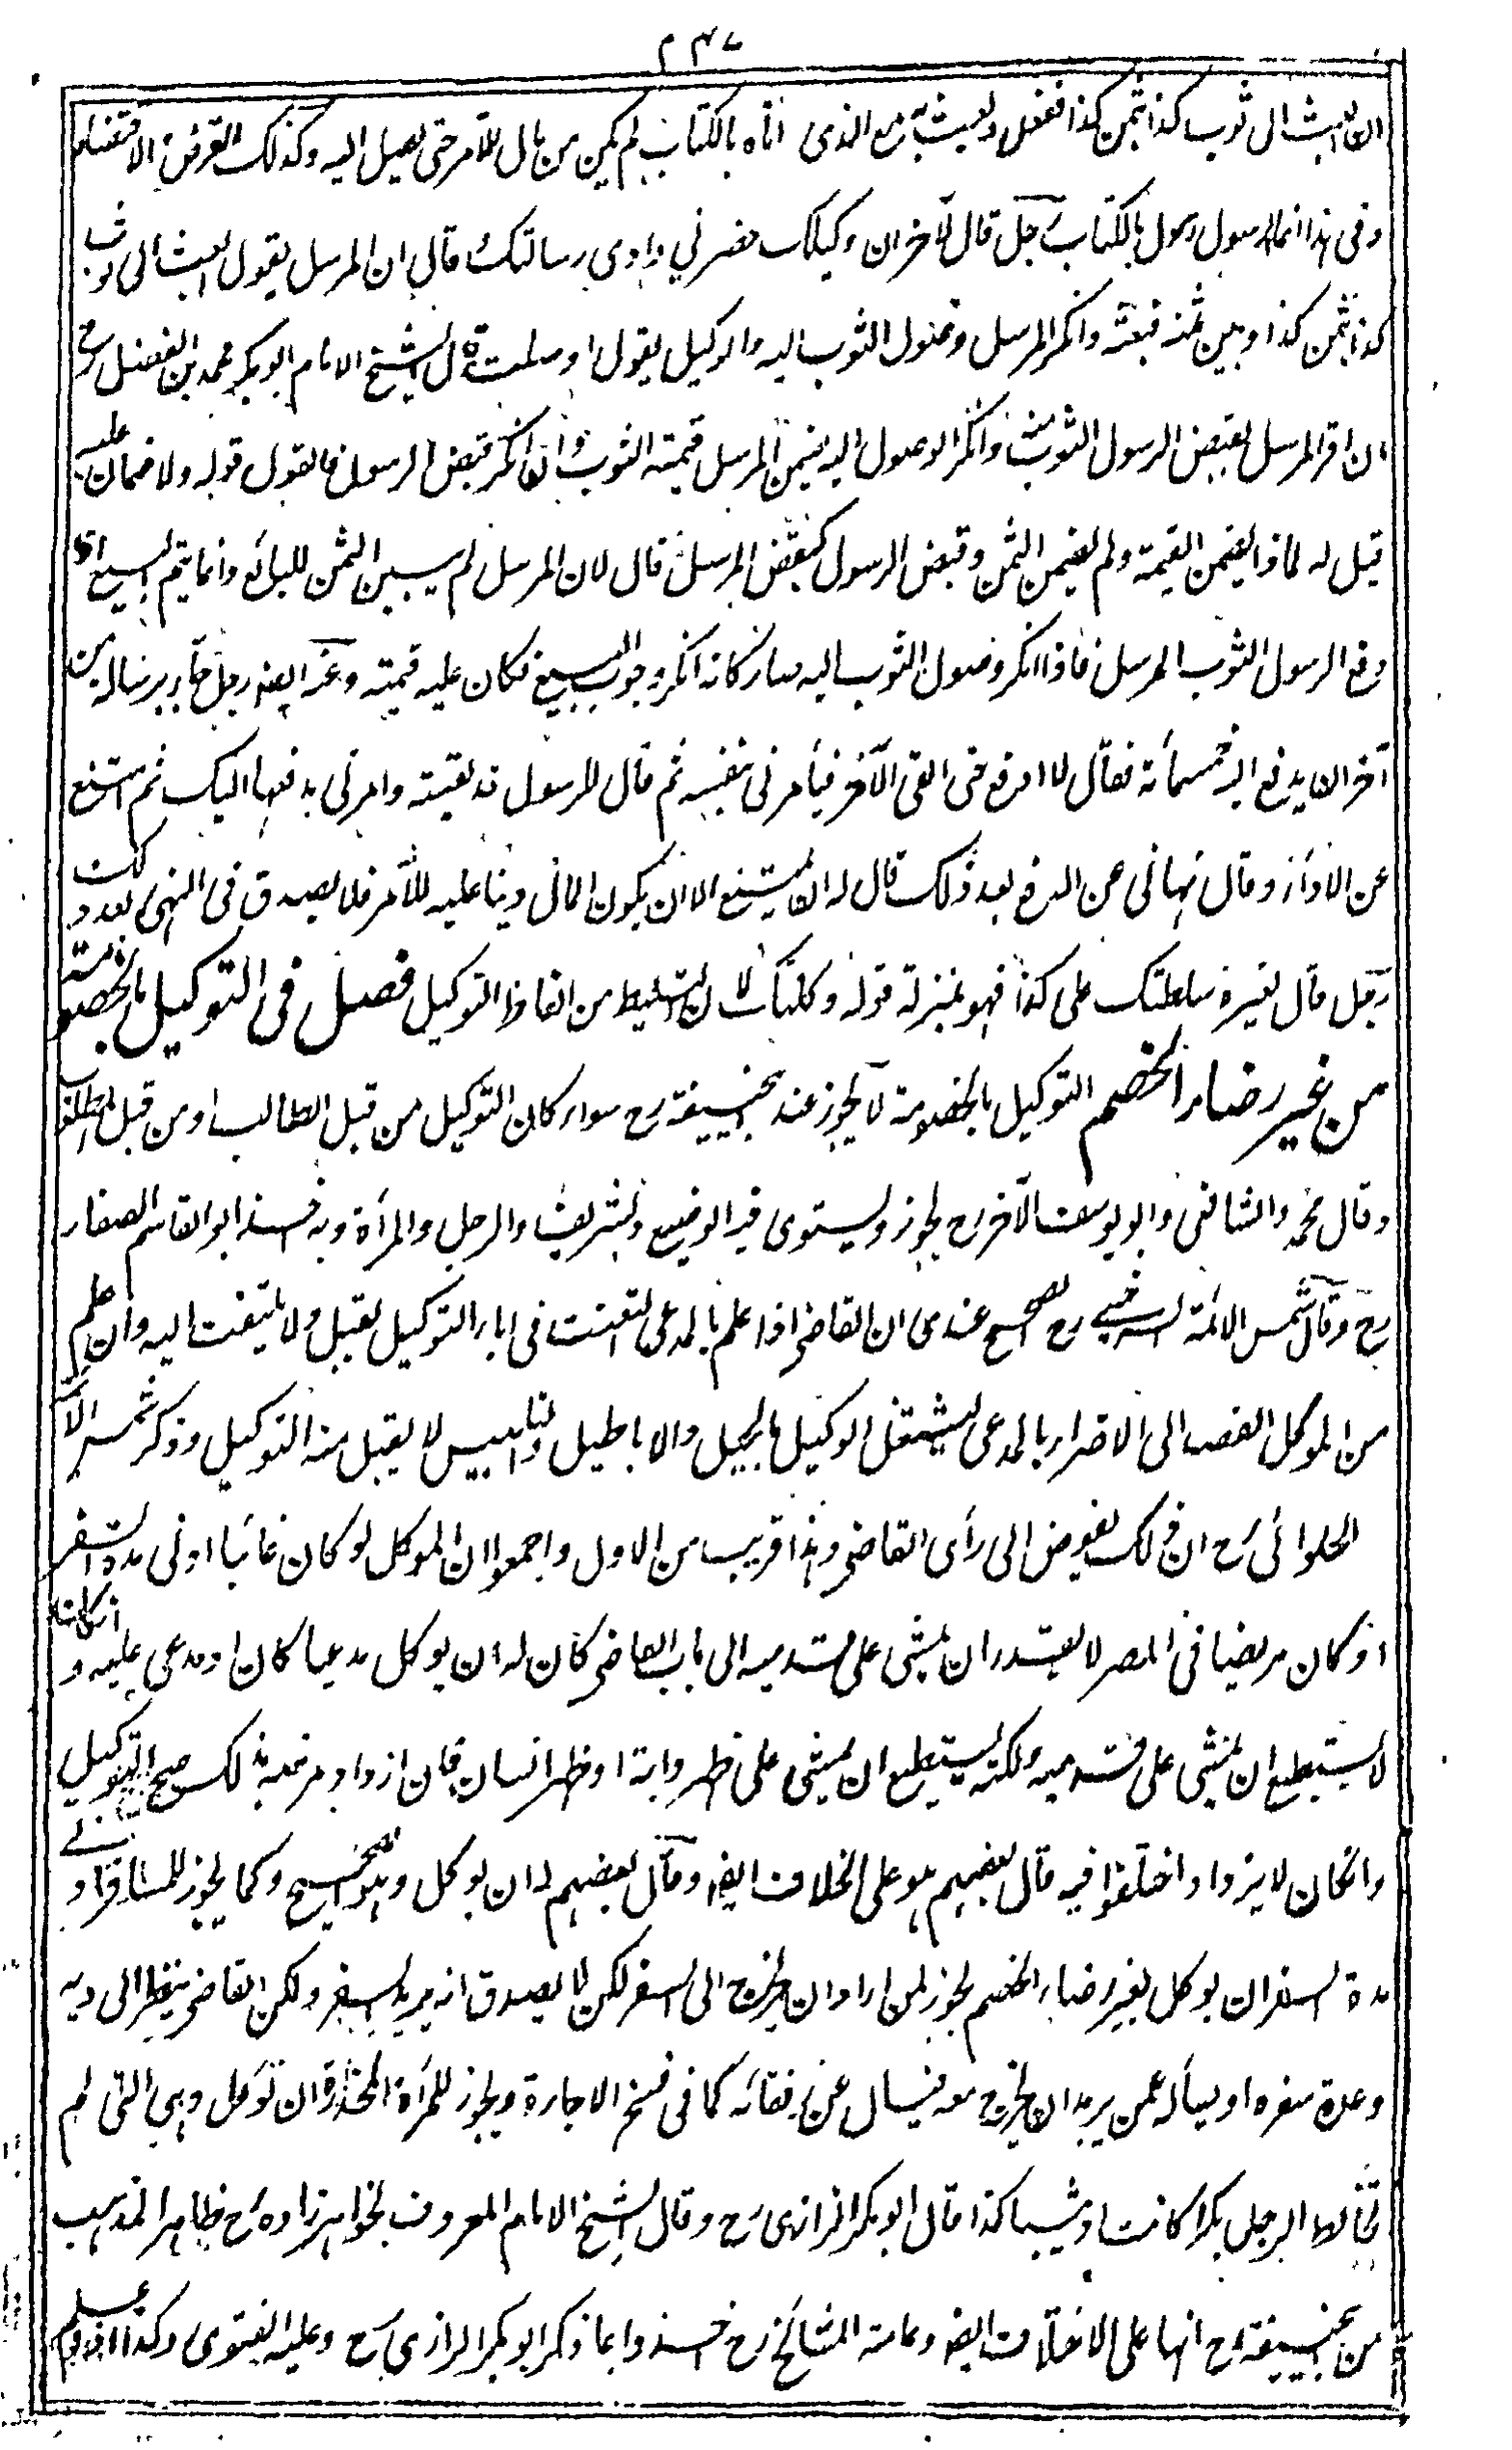 ان ابعث الى ثوب كذا بثمن كذا ففعل وبعث به مع الذى اتاه بالكتاب لم يكن من مال الآمر حتى يصل اليه وكذلك القرض والاقتضاء
وفى هذا انما الرسول رسول بالكتاب رجل قال لآخر ان وكيلك حضرنى وادى رسالتك وقال ان المرسل يقول ابعث الى ثوب
كذا بثمن كذا وبين ثمنه فبعته وانكر المرسل وصول الثوب اليه والوكيل يقول اوصلت قال الشيخ الامام ابو بكر محمد ابن الفضل رح
ان اقر المرسل بقبض الرسول الثوب منه وانكر الوصول اليه يضمن المرسل قيمته الثوب وان انكر قبض الرسول فالقول قوله ولا ضمان عليه
قيل له لماذا يضمن القيمة ولم يضمن الثمن وقبض الرسول كقبض المرسل قال لان المرسل لم يبين الثمن للبائع وانما يتم البيع اذا
دفع الرسول الثوب المرسل فاذا انكر وصول الثوب اليه صار كانه انكر وجوب البيع فكان عليه قيمته وعنه ايضه رجل جاء برسالة من
آخر ان يدفع اليه خمسمائة فقال لا ادفع حتى القى الآخر فيأمرنى بنفسه ثم قال للرسول قد لقيته وامرنى بدفعها اليك ثم امتنع
عن الاداء وقال نهانى عن الدفع بعد ذلك قال له ان يمتنع الا ان يكون المال دينا عليه للآمر فلا يصدق فى النهى بعد ذلك
رجل قال لغيره سلطتك على كذا فهو بمنزلة قوله وكلتك لان التسليط من الفاظ التوكيل فصل فى التوكيل بالخصومة
من غير رضاء الخصم التوكيل بالخصومة لا يجوز عند ابيحنيفة رح سواء كان التوكيل من قبل الطالب او من قبل المطلوب
وقال محمد والشافعى وابو يوسف الآخر رح يجوز ويستوى فيه الوضيع والشريف والرجل والمرأة وبه اخذ ابو القاسم الصفار
رح وقال شمس الائمة السرخسى رح الصحيح عندى ان القاضى اذا علم بالمدعى التعنت فى اباء التوكيل يقبل ولا يلتفت اليه وان علم
من الموكل القصد الى الاضرار بالمدعى ليشتغل الوكيل بالحيل والاباطيل والتلبيس لا يقبل منه التوكيل وذكر شمس الائمة
الحلوائى رح ان ذلك يفوض الى رأى القاضى وهذا قريب من الاول واجمعوا ان الموكل لو كان غائبا ادنى مدة السفر
او كان مريضا فى المصر لا يقدر ان يمشى على قدميه الى باب القاضى كان له ان يوكل مدعيا كان او مدعى عليه و ان كان
لا يستطيع ان يمشى على قدميه ولكنه يستطيع ان يمشى على ظهر دابة او ظهر انسان فان ازداد مرضه بذلك صح التوكيل
وان كان لا يزداد اختلفوا فيه قال بعضهم هو على الخلاف ايضه وقال بعضهم له ان يوكل وهو الصحيح وكما يجوز للمسافر ادنى
مدة السفر ان يوكل بغير رضاء الخصم يجوز لمن اراد ان يخرج الى السفر لكن لا يصدق انه يريد السفر ولكن القاضى ينظر الى زيه
وعدة سفره او يسأله عمن يريد ان يخرج معه فيسال عن رفقائه كما فى فسخ الاجارة ويجوز للمرأة المخدرة ان توكل وهى التى لم
تخالط الرجال بكرا كانت او ثيبا كذا قال ابو بكر الرازى رح وقال الشيخ الامام المعروف بخواهرزاده رح ظاهر المذهب
من ابيحنيفة رح انها على الاختلاف ايضه وعامة المشائخ رح اخذوا بما ذكر ابو بكر الرازى رح وعليه الفتوى وكذا اذا لم